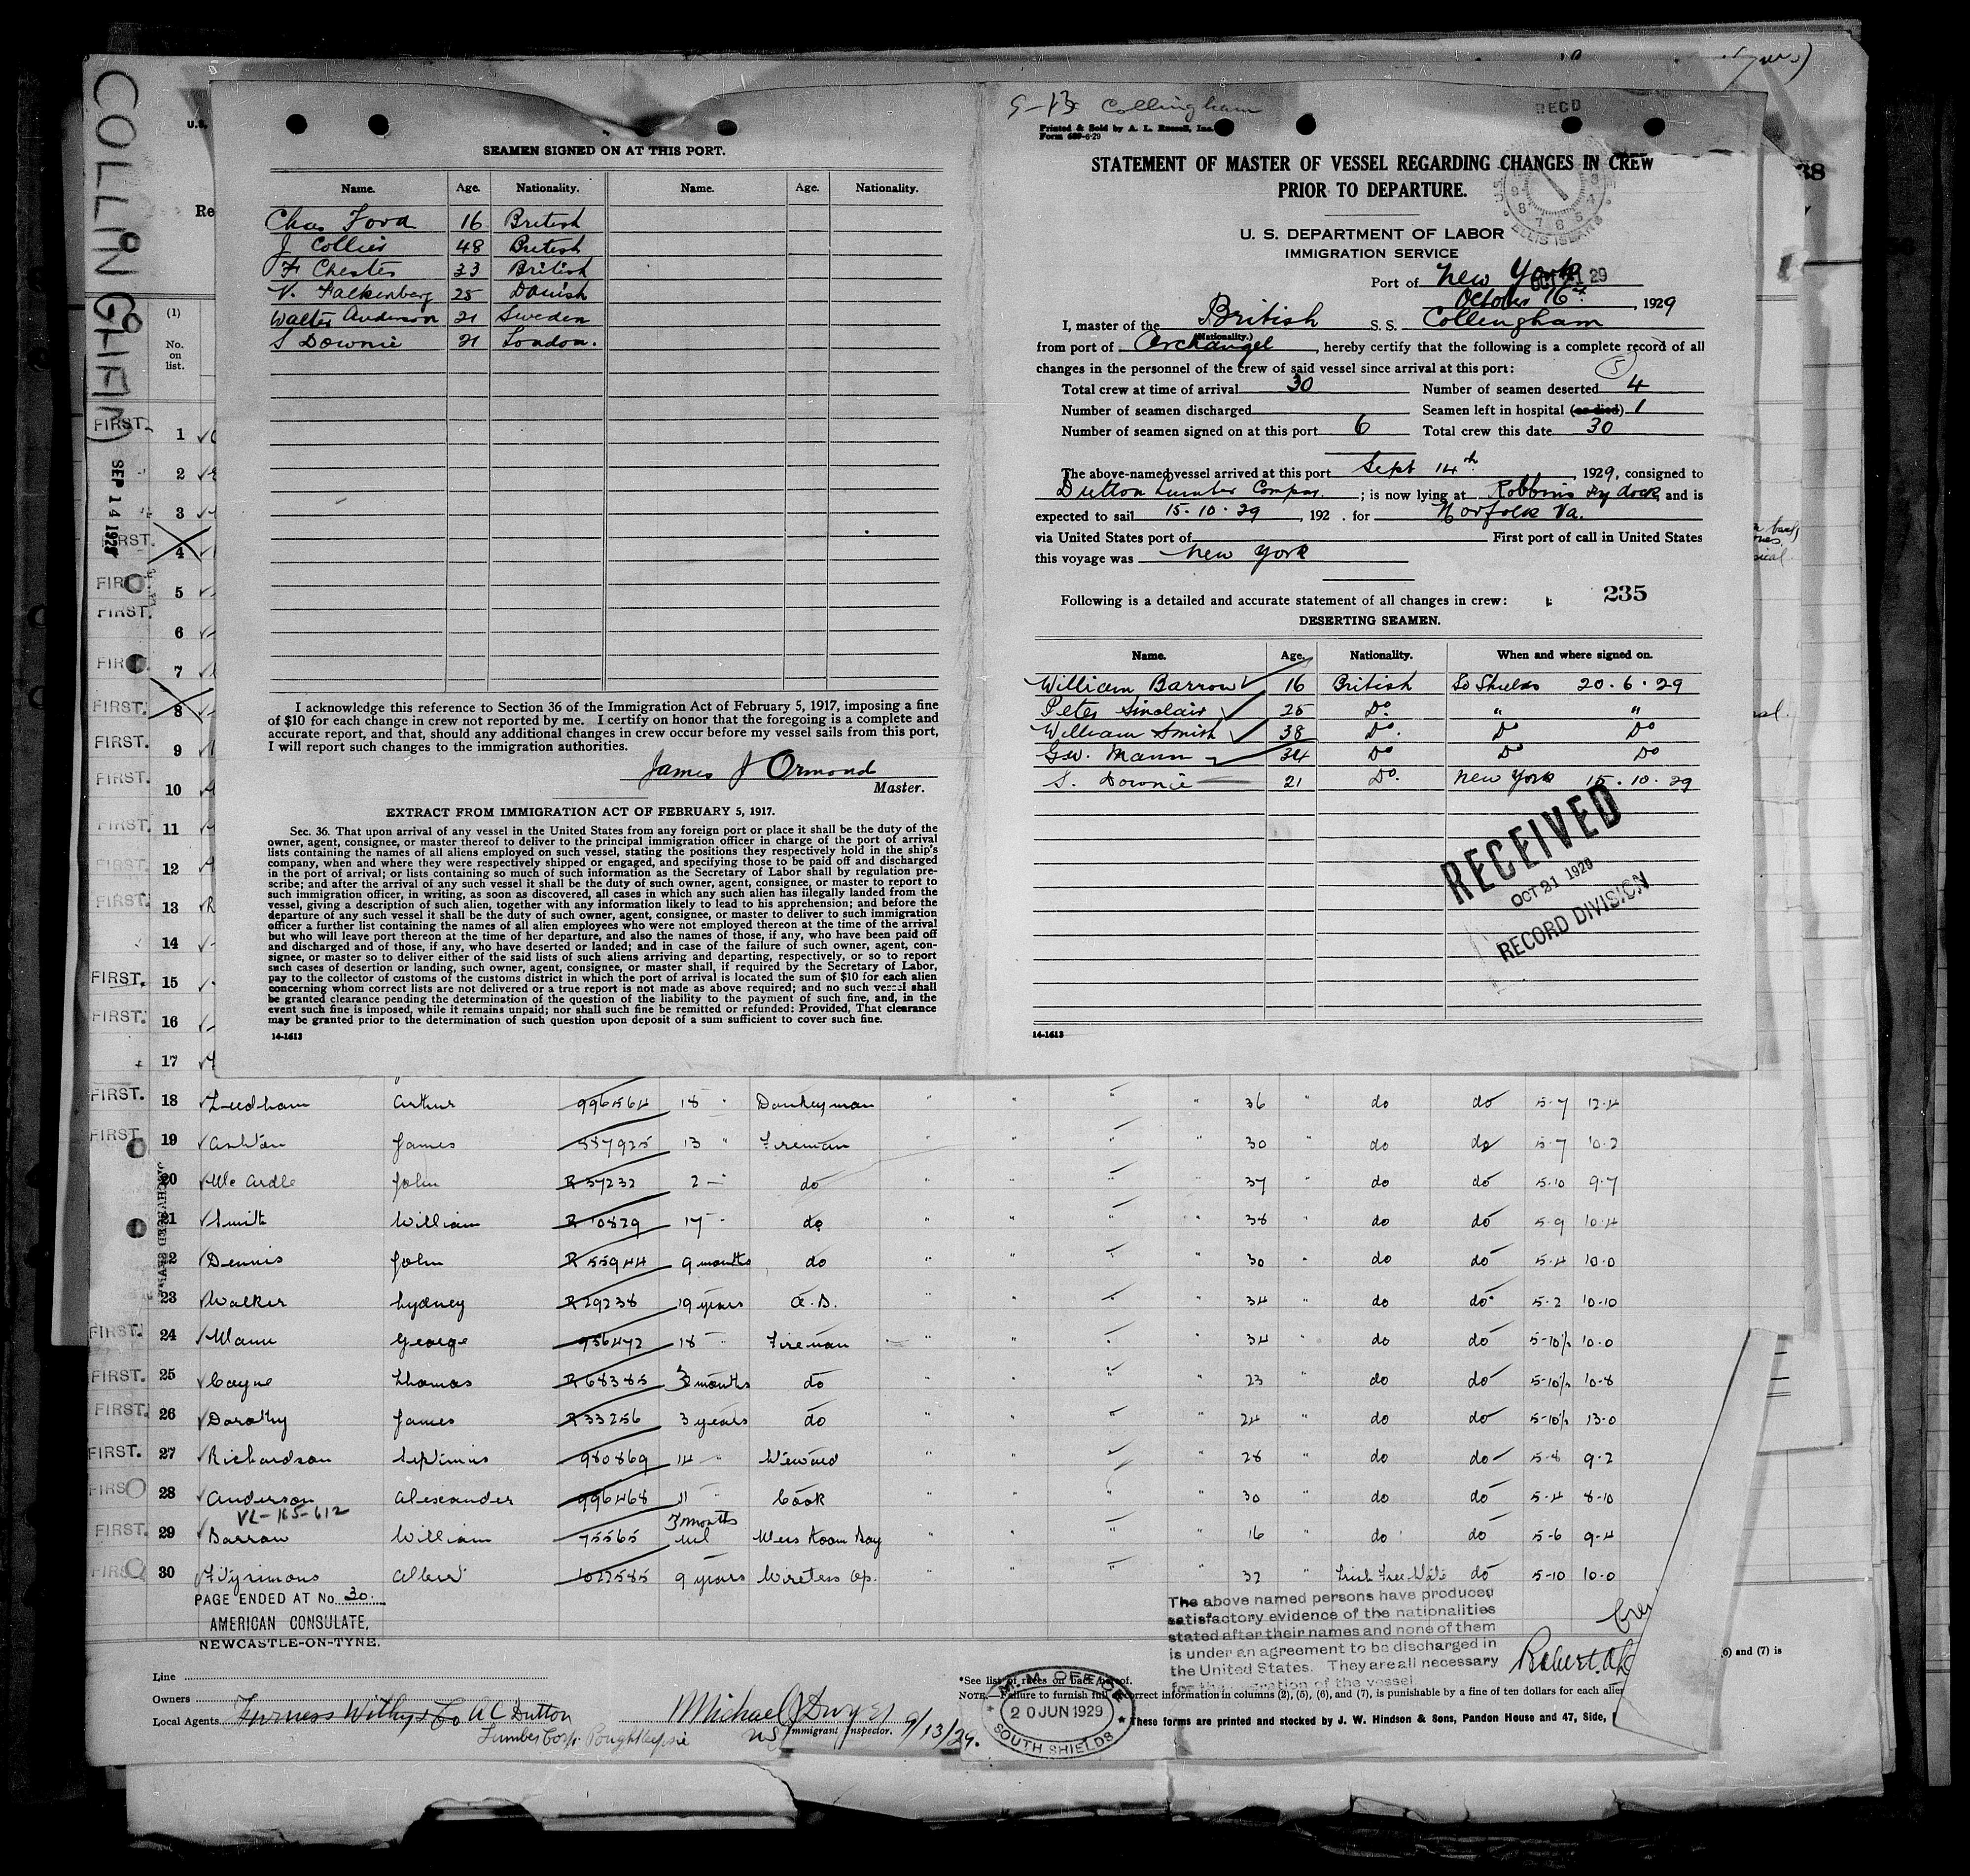 COLLINGHAM
SEP 14 1929
SEAMEN SIGNED ON AT THIS PORT.
Name. Age. Nationality. Name. Age. Nationality.
Chas Ford 16 British
J Collier 48 British
F Chester 33 British
V. Falkenberg 25 Danish
Walter Anderson 21 Sweden
S Downie 21 London.
I acknowledge this reference to Section 36 of the Immigration Act of February 5, 1917, imposing a fine
of $10 for each change in crew not reported by me. I certify on honor that the foregoing is a complete and
accurate report, and that, should any additional changes in crew occur before my vessel sails from this port,
I will report such changes to the immigration authorities.
James J Ormond
Master.
EXTRACT FROM IMMIGRATION ACT OF FEBRUARY 5, 1917.
Sec. 36. That upon arrival of any vessel in the United States from any foreign port or place it shall be the duty of the
owner, agent, consignee, or master thereof to deliver to the principal immigration officer in charge of the port of arrival
lists containing the names of all aliens employed on such vessel, stating the positions they respectively hold in the ship's
company, when and where they were respectively shipped or engaged, and specifying those to be paid off and discharged
in the port of arrival; or lists containing so much of such information as the Secretary of Labor shall by regulation pre-
scribe; and after the arrival of any such vessel it shall be the duty of such owner, agent, consignee, or master to report to
such immigration officer, in writing, as soon as discovered, all cases in which any such alien has illegally landed from the
vessel, giving a description of such alien, together with any information likely to lead to his apprehension; and before the
departure of any such vessel it shall be the duty of such owner, agent, consignee, or master to deliver to such immigration
officer a further list containing the names of all alien employees who were not employed thereon at the time of the arrival
but who will leave port thereon at the time of her departure, and also the names of those, if any, who have been paid off
and discharged and of those, if any, who have deserted or landed; and in case of the failure of such owner, agent, con-
signee, or master so to deliver either of the said lists of such aliens arriving and departing, respectively, or so to report
such cases of desertion or landing, such owner, agent, consignee, or master shall, if required by the Secretary of Labor,
pay to the collector of customs of the customs district in which the port of arrival is located the sum of $10 for each alien
concerning whom correct lists are not delivered or a true report is not made as above required; and no such vessel shall
be granted clearance pending the determination of the question of the liability to the payment of such fine, and, in the
event such fine is imposed, while it remains unpaid; nor shall such fine be remitted or refunded: Provided, That clearance
may be granted prior to the determination of such question upon deposit of a sum sufficient to cover such fine.
14-1613
Collingham
RECD
Printed & Sold by A. L. Russell, Inc.
Form 689-6-29
STATEMENT OF MASTER OF VESSEL REGARDING CHANGES IN CREW
PRIOR TO DEPARTURE.
ELLIS ISLAND
U. S. DEPARTMENT OF LABOR
IMMIGRATION SERVICE
Port of New York
October 16th, 1929
I, master of the British S. S. Collingham
(Nationality.)
from port of Archangel, hereby certify that the following is a complete record of all
changes in the personnel of the crew of said vessel since arrival at this port:
5
Total crew at time of arrival 30 Number of seamen deserted 4
Number of seamen discharged Seamen left in hospital (or died) 1
Number of seamen signed on at this port 6 Total crew this date 30
The above-named vessel arrived at this port Sept 14th, 1929, consigned to
Dutton Lumber Compny. ; is now lying at Robbins Dy dock, and is
expected to sail 15.10.29, 192 . for Norfolk Va.
via United States port of First port of call in United States
this voyage was New York
Following is a detailed and accurate statement of all changes in crew: 235
DESERTING SEAMEN.
Name. Age. Nationality. When and where signed on.
William Barrow 16 British So Shields 20.6.29
Peter Sinclair 25 Do. " "
William Smith 38 Do. Do Do
G.W. Mann 34 Do Do Do
S. Downie 21 Do. New York 15.10.29
RECEIVED
OCT 21 1929
RECORD DIVISION
14-1613
(1)
No.
on
list.
FIRST. 1
2
3
4
FIRST. 5
FIRST. 6
7
FIRST. 8
FIRST. 9
FIRST. 10
FIRST. 11
FIRST. 12
FIRST. 13
14
FIRST. 15
FIRST. 16
17
FIRST. 18 Leedham Arthur 996564 18 " Donkeyman " " " " 36 " do do 5-7 12-4
FIRST. 19 Ashton James 557925 13 " Fireman " " " " 30 " do do 5-7 10-2
20 McArdle John R 37232 2 " do " " " " 37 " do do 5-10 9-7
21 Smith William R 10829 17 " do " " " " 38 " do do 5-9 10-4
22 Dennis John R 55944 9 months do " " " " 30 " do do 5-4 10-0
23 Walker Sydney R 29238 19 years A.B. " " " " 34 " do do 5-2 10-10
FIRST. 24 Mann George 956472 18 " Fireman " " " " 34 " do do 5-10½ 10-0
FIRST. 25 Coyne Thomas R 68385 3 months do " " " " 23 " do do 5-10½ 10-8
FIRST. 26 Dorothy James R 33256 3 years do " " " " 24 " do do 5-10½ 13-0
FIRST. 27 Richardson Septimus 980869 14 " Steward " " " " 28 " do do 5-8 9-2
FIRST 28 Anderson Alexander 996468 11 " Cook " " " " 30 " do do 5-4 8-10
VL-165-612
3 months
FIRST. 29 Barrow William 75565 nil Mess Room Boy " " " " 16 " do do 5-6 9-4
FIRST 30 Fitzsimons Albert 1027585 9 years Wireless Op. " " " " 32 " Irish Free State do 5-10 10-0
PAGE ENDED AT No. 30.
AMERICAN CONSULATE,
NEWCASTLE-ON-TYNE.
The above named persons have produced
satisfactory evidence of the nationalities
stated after their names and none of them
is under an agreement to be discharged in
the United States. They are all necessary
for the operation of the vessel
Line
Owners
Local Agents Furness Withy & Co A C Dutton
Lumber Corp. Poughkeepsie
Michael J Dwyer
Immigrant Inspector. 9/13/29.
M. M. OFFICE
20 JUN 1929
SOUTH SHIELDS
*See list of races on back hereof.
NOTE.—Failure to furnish full correct information in columns (2), (5), (6), and (7), is punishable by a fine of ten dollars for each alien
(6) and (7) is
These forms are printed and stocked by J. W. Hindson & Sons, Pandon House and 47, Side,